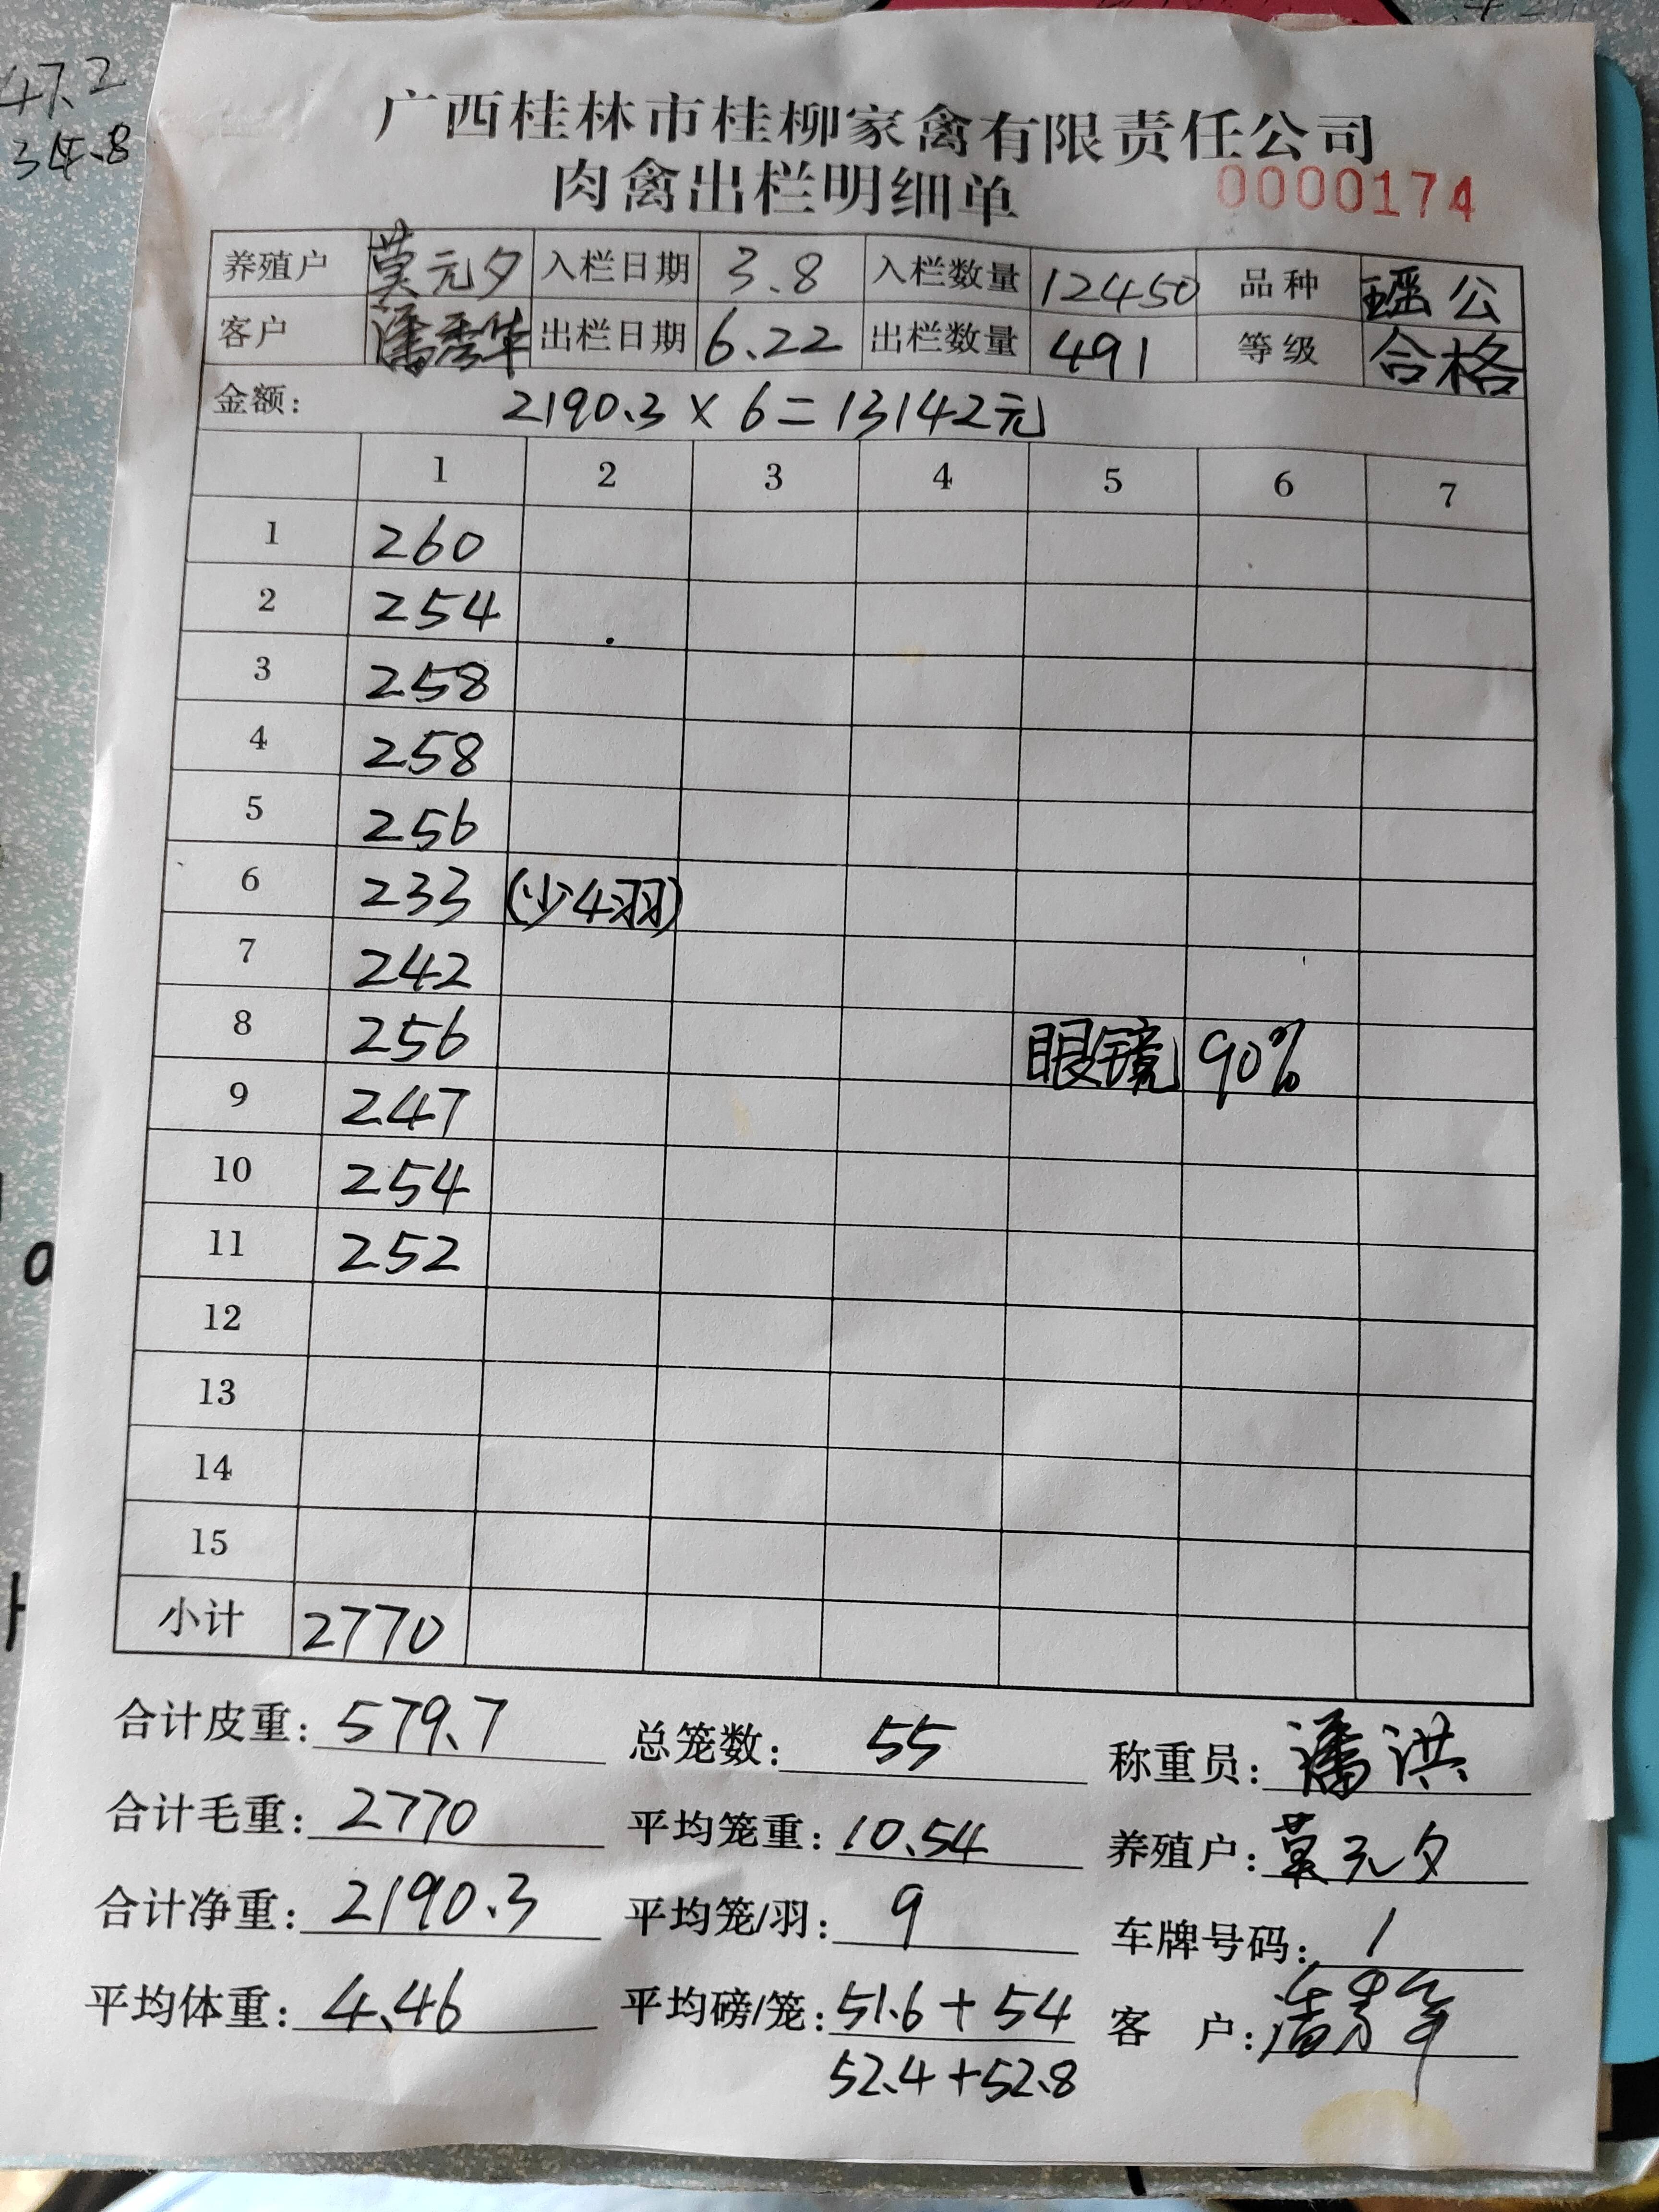 47.2
34.8
广西桂林市桂柳家禽有限责任公司
肉禽出栏明细单 0000174
养殖户 莫元夕 入栏日期 3.8 入栏数量 12450 品种 瑶公
客户 潘秀华 出栏日期 6.22 出栏数量 491 等级 合格
金额: 2190.3 × 6 = 13142元
1 2 3 4 5 6 7
1 260
2 254
3 258
4 258
5 256
6 233 (少4羽)
7 242
8 256 眼镜 90%
9 247
10 254
11 252
12
13
14
15
小计 2770
合计皮重: 579.7 总笼数: 55 称重员: 潘洪
合计毛重: 2770 平均笼重: 10.54 养殖户: 莫元夕
合计净重: 2190.3 平均笼/羽: 9 车牌号码: 1
平均体重: 4.46 平均磅/笼: 51.6 + 54 客 户:
52.4 + 52.8